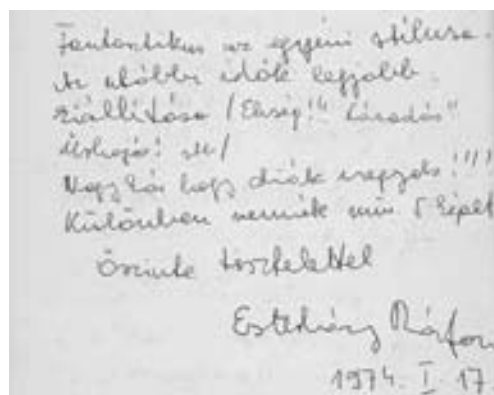 Fantasztikus az egyéni stílusa.
Az utóbbi idők legjobb
kiállítása / Éhség! "Lázadás"
/
Nagy kár hogy diák vagyok!!!!
Különben vennék min 5 képet
Őszinte tisztelettel
Esterházy Márton
1974. I. 17.